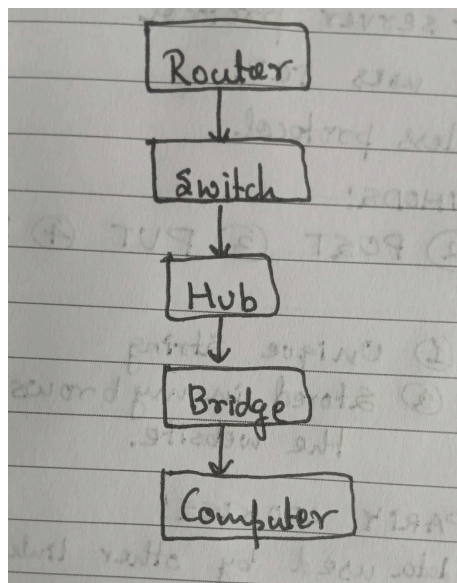 Router
Switch
Hub
Bridge
Computer